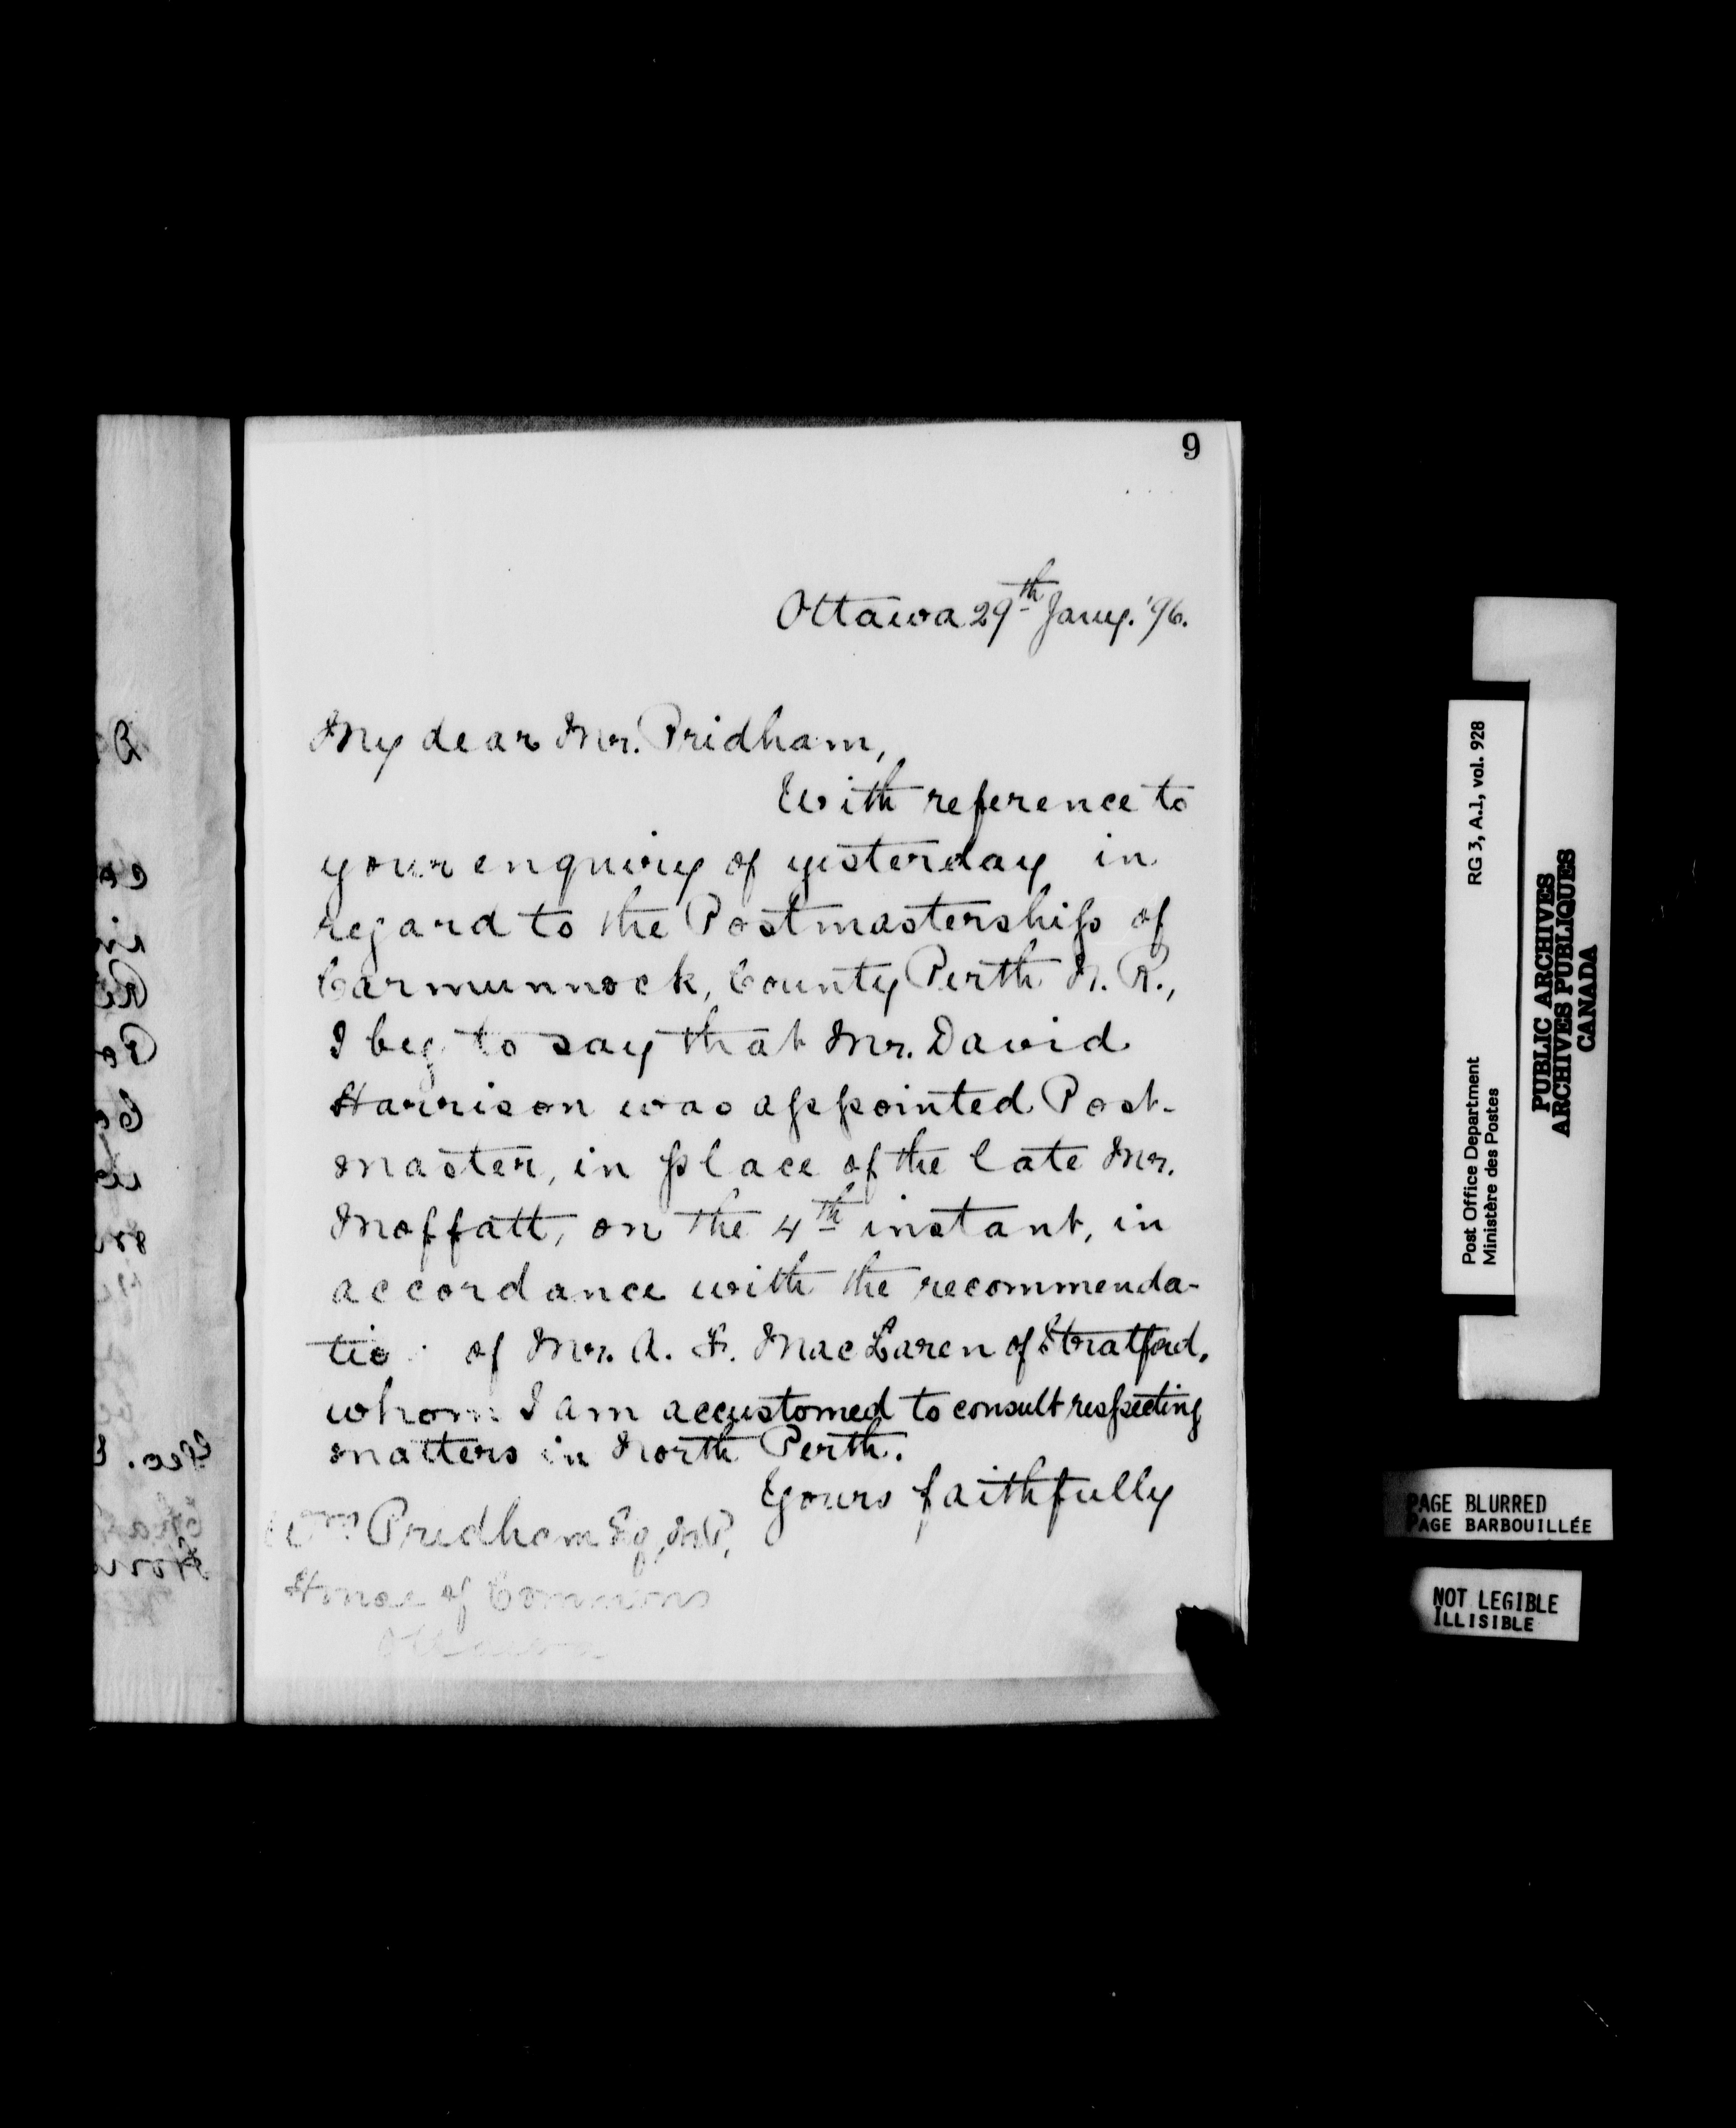 9
Ottawa 29th Jany. '96.
My dear Mr. Pridham,
With reference to
your enquiry of yesterday in
regard to the Postmastership of
Carmunnock, County Perth N. R.,
I beg to say that Mr. David
Harrison was appointed Post-
master, in place of the late Mr.
Moffatt, on the 4th instant, in
accordance with the recommenda-
tio of Mr. A. F. MacLaren of Stratford,
whom I am accustomed to consult respecting
matters in North Perth.
Yours faithfully
Wm Pridham Esq, M.P.
House of Commons
Ottawa
RG 3, A.1, vol. 928
Post Office Department
Ministère des Postes
PUBLIC ARCHIVES
ARCHIVES PUBLIQUES
CANADA
PAGE BLURRED
PAGE BARBOUILLÉE
NOT LEGIBLE
ILLISIBLE